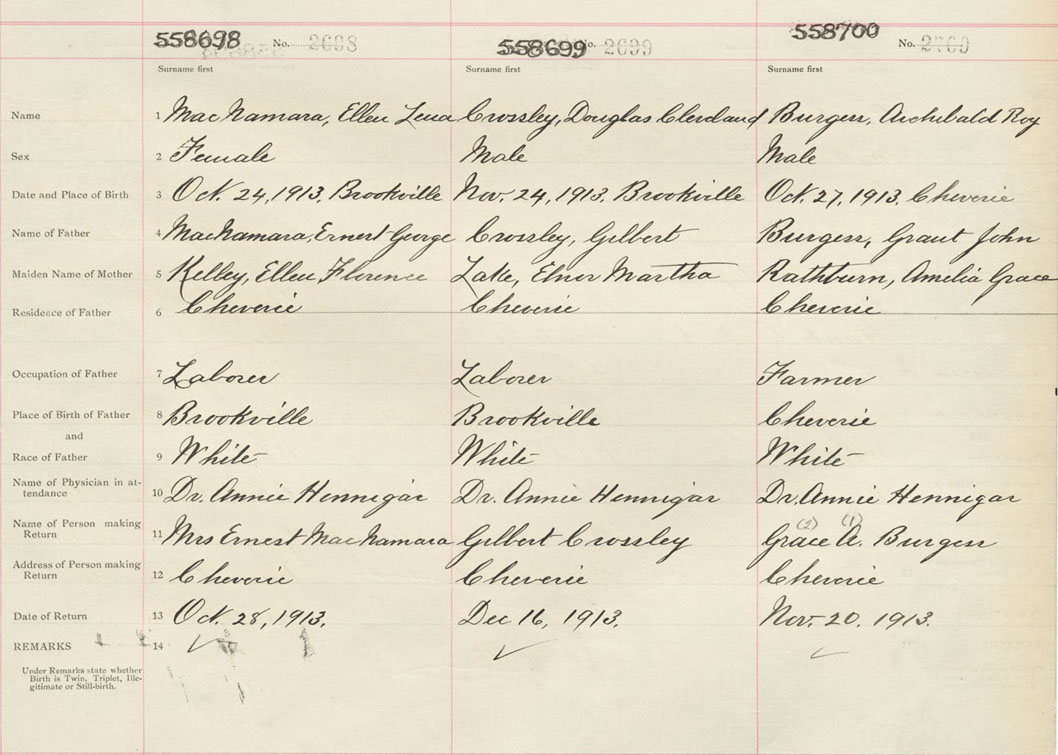 558698 No. 2698 558699 No. 2699 558700 No. 2700
Surname first Surname first Surname first
Name 1 MacNamara, Ellen Lena Crossley, Douglas Cleveland Burgess, Archibald Roy
Sex 2 Female Male Male
Date and Place of Birth 3 Oct. 24, 1913. Brookville Nov. 24, 1913. Brookville Oct. 27, 1913. Cheverie
Name of Father 4 MacNamara, Ernest George Crossley, Gilbert Burgess, Grant John
Maiden Name of Mother 5 Kelley, Ellen Florence Lake, Elnor Martha Rathburn, Amelia Grace
Residence of Father 6 Cheverie Cheverie Cheverie
Occupation of Father 7 Laborer Laborer Farmer
Place of Birth of Father 8 Brookville Brookville Cheverie
and
Race of Father 9 White White White
Name of Physician in at-
tendance 10 Dr. Annie Hennigar Dr. Annie Hennigar Dr. Annie Hennigar
(2) (1)
Name of Person making
Return 11 Mrs Ernest MacNamara Gilbert Crossley Grace A. Burgess
Address of Person making
Return 12 Cheverie Cheverie Cheverie
Date of Return 13 Oct. 28, 1913. Dec 16, 1913. Nov. 20. 1913.
REMARKS 14
Under Remarks state whether
Birth is Twin, Triplet, Ille-
gitimate or Still-birth.